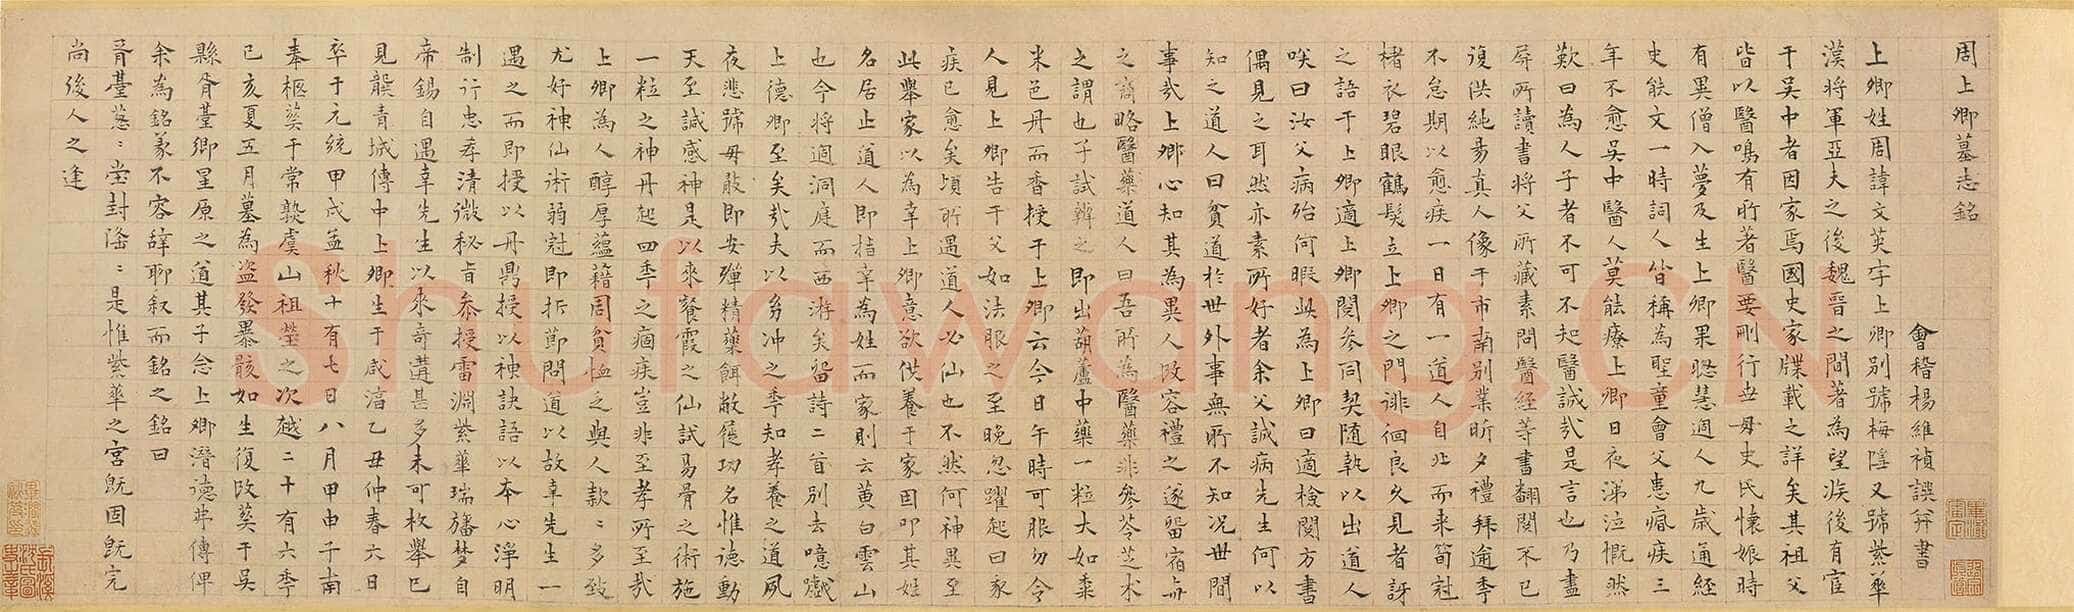 周上卿墓志銘
會稽楊維禎譔并書
上卿姓周諱文英字上卿別號梅隱又號紫華
漢將軍亞夫之後魏晉之間著為望族後有宦
于吳中者因家焉國史家牒載之詳矣其祖父
皆以醫鳴有所著醫要刪行世母史氏懷娠時
有異僧入夢及生上卿果聰慧過人九歲通經
史能文一時詞人皆稱為聖童會父患癲疾三
年不愈吳中醫人莫能療上卿日夜涕泣慨然
歎曰為人子者不可不知醫誠哉是言也乃盡
屏所讀書將父所藏素問醫經等書翻閱不已
復供純易真人像于市南別業昕夕禮拜逾季
不怠期以愈疾一日有一道人自北而來筍冠
楮衣碧眼鶴髮立上卿之門徘徊良久見者訝
之語于上卿適上卿閱參同契隨執以出道人
唉曰汝父病殆何暇此為上卿曰適檢閱方書
偶見之耳然亦素所好者余父誠病先生何以
知之道人曰貧道於世外事無所不知況世間
事哉上卿心知其為異人改容禮之遂留宿亦
之齋略醫藥道人曰吾所為醫藥非參苓芝朮
之謂也子試辨之即出葫蘆中藥一粒大如黍
米色丹而香授于上卿云今日午時可服勿令
人見上卿告于父如法服之至晚忽躍起曰家
疾已愈矣頃所遇道人必仙也不然何神異至
此舉家以為幸上卿意欲供養于家因叩其姓
名居止道人即指辛為姓而家則云黃白雲山
也今將適洞庭而西游矣留詩二首別去噫戲
上德卿至矣哉夫以幼沖之季知孝養之道夙
夜悲號毋敢即安殫精藥餌敝屣功名惟德動
天至誠感神是以來餐霞之仙試易骨之術施
一粒之神丹起四季之痼疾豈非至孝所至哉
上卿為人醇厚蘊藉周貧恤之與人款〻多致
尤好神仙術弱冠即折節問道以故辛先生一
遇之而即授以丹鼎授以神訣語以本心淨明
制行忠孝清微秘旨參授雷淵紫華瑞旛夢自
帝錫自遇辛先生以來奇溝甚多未可枚舉已
見龔青城傳中上卿生于咸淳乙丑仲春六日
卒于元統甲戌孟秋十有七日八月甲申子南
奉柩葬于常孰虞山祖塋之次越二十有六季
己亥夏五月墓為盜發暴骸如生復改葬于吳
縣胥臺鄉星原之道其子念上卿潛德弗傳俾
余為銘義不容辭聊叙而銘之銘曰
胥臺蔥〻崇封隆〻是惟紫華之宮既固既完
尚後人之逢
Shufawang.CN